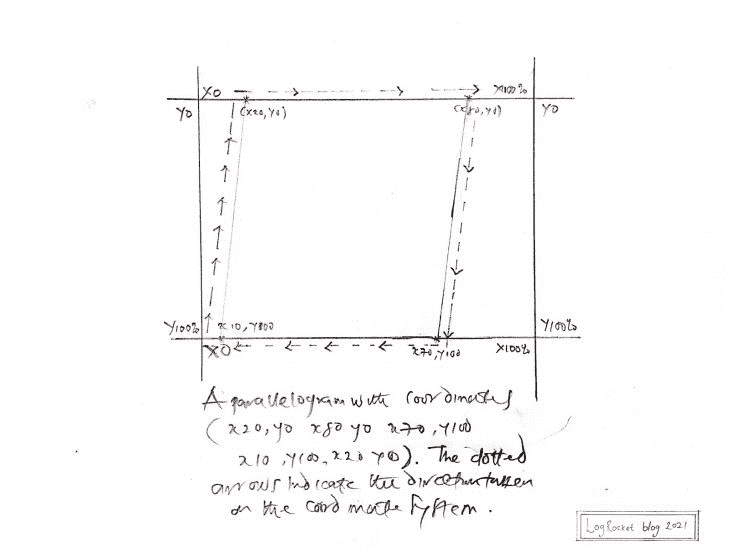 X0
X100%
Y0
(x20, y0)
(x80, y0)
Y0
Y100%
x10, y100
Y100%
X0
x70, y100
X100%
A parallelogram with coordinates
(x20, y0 x80 y0 x70, y100
x10, y100, x20 y0). The dotted
arrows indicate the direction taken
on the coordinate system.
LogRocket blog 2021